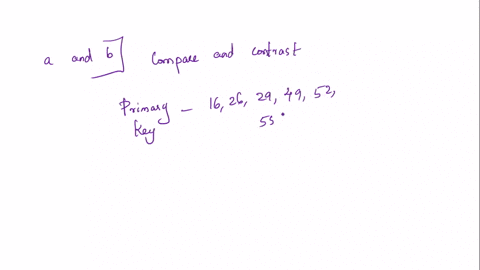 a and b Compare and contrast
Primary - 16, 26, 29, 49, 52,
Key 55